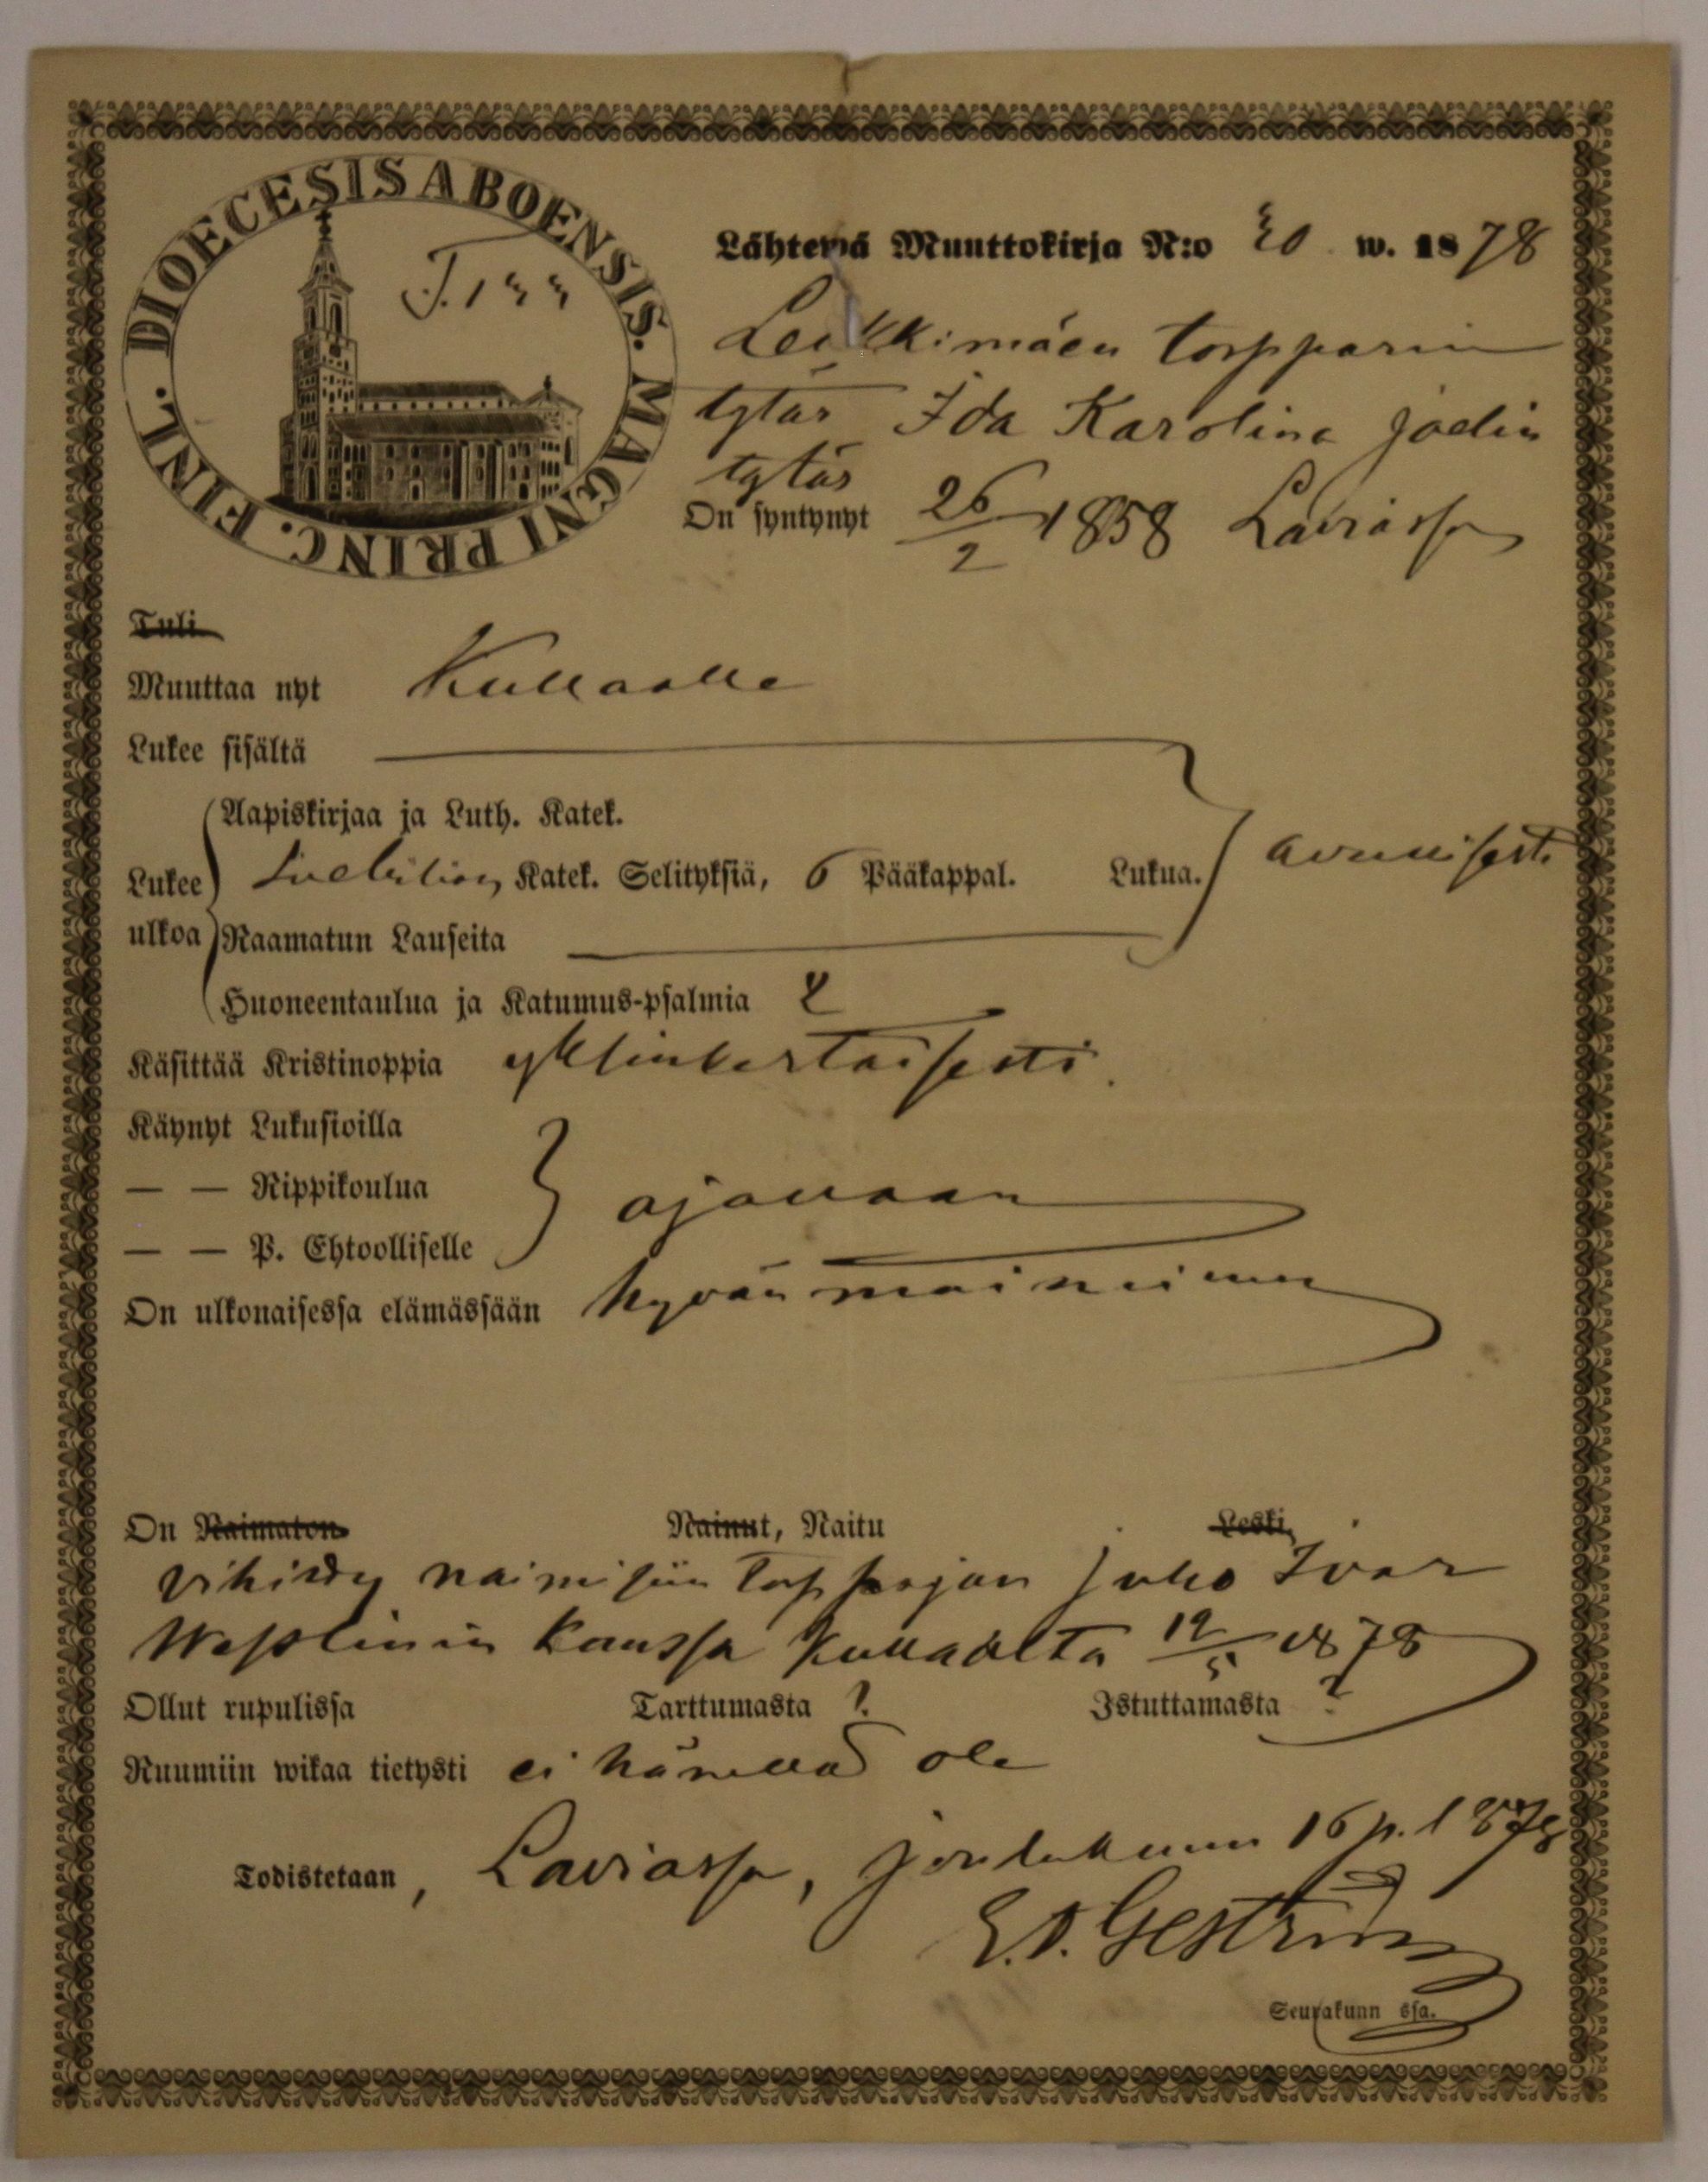 DIOECESIS ABOENSIS. MAGNI PRINC. FINL.
Lähtewä Muuttokirja N:o 30 w. 1878
Leikkimäen torpparin
tytär Ida Karolina
tytär
On syntynyt 26/2 1858 Laviassa
Tuli
Muuttaa nyt Kullaalle
Lukee sisältä
Aapiskirjaa ja Luth. Katek.
Lukee Katek. Selityksiä, 6 Pääkappal. Lukua.
avullisesti
ulkoa Raamatun Lauseita
Huoneentaulua ja Katumus-psalmia
Käsittää Kristinoppia yksinkertaisesti.
Käynyt Lukusioilla
— — Rippikoulua ajallaan
— — P. Ehtoolliselle
On ulkonaisessa elämässään hyvän maininen
On Naimaton Nainut, Naitu Leski
vihitty naimisiin torpparjan Juho Ivar
Westlinin kanssa Kullaalta 12/5 1878
Ollut rupulissa Tarttumasta ? Istuttamasta ?
Ruumiin wikaa tietysti ei hänellä ole
Todistetaan, Laviassa, joulukuun 16 p. 1878
Gestrin
Seurakunn ssa.